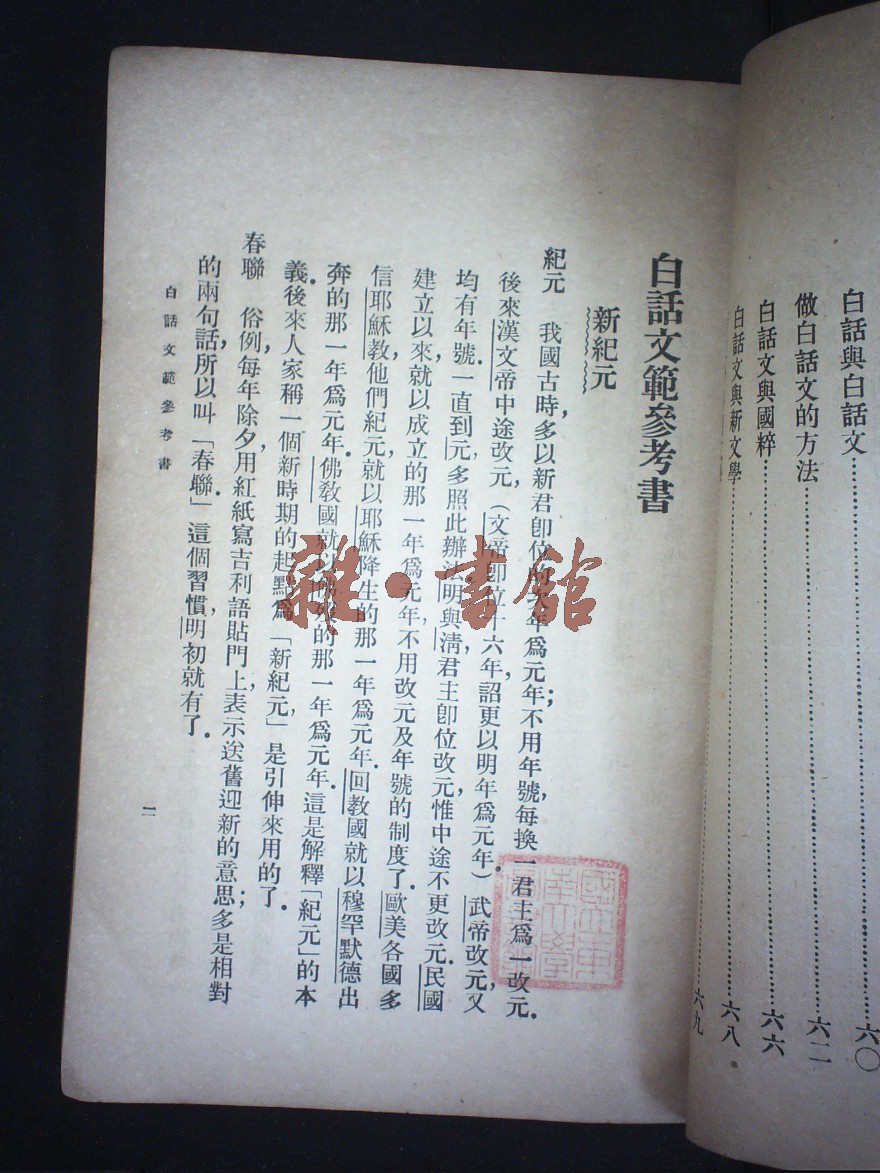 白話與白話文……六〇
做白話文的方法……六二
白話文與國粹……六六
白話文與新文學……六八
……六九
白話文範參考書
新紀元
紀元　我國古時，多以新君卽位的年爲元年；不用年號，每換一君主爲一改元．
後來漢文帝中途改元，（文帝卽位十六年，詔更以明年爲元年）武帝改元，又
均有年號．一直到元，多照此辦法．明與淸，君主卽位改元，惟中途不更改元．民國
建立以來，就以成立的那一年爲元年，不用改元及年號的制度了．歐美各國多
信耶穌教，他們紀元就以耶穌降生的那一年爲元年．回教國就以穆罕默德出
奔的那一年爲元年．佛教國就以的那一年爲元年．這是解釋「紀元」的本
義．後來人家稱一個新時期的起點爲「新紀元」，是引伸來用的了．
春聯　俗例每年除夕，用紅紙寫吉利語，貼門上，表示送舊迎新的意思；多是相對
的兩句話，所以叫「春聯」．這個習慣，明初就有了．
白話文範參考書
二
雜·書館